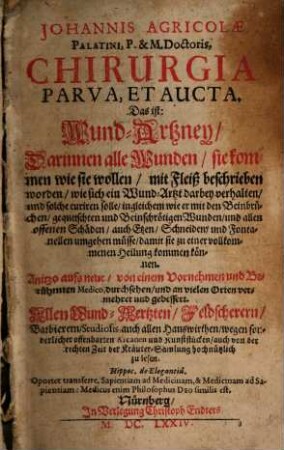 JOHANNIS AGRICOLÆ
PALATINI, P. & M. Doctoris,
CHIRURGIA
PARVA, ET AUCTA,
Das ist:
Wund-Artzney /
Darinnen alle Wunden / sie kom-
men wie sie wollen / mit Fleiß beschrieben
worden / wie sich ein Wund-Artzt darbey verhalten /
und solche curiren solle / ingleichem wie er mit den Beinbrü-
chen / gequetschten und Beinschrötigen Wunden / und allen
offenen Schäden / auch Etzen / Schneiden und Fonta-
nellen umgehen müsse / damit sie zu einer vollkom-
menen Heilung kommen kön-
nen.
Anitzo aufs neue / von einem Vornehmen und Be-
rühmten Medico, durchsehen / und an vielen Orten ver-
mehret und gebessert.
Allen Wund-Aertzten / Feldscherern /
Barbierern / Studiosis auch allen Hauswirthen / wegen son-
derlicher offenbarten Arcanen und Kunststücken / auch von der
rechten Zeit der Kräuter-Samlung hochnützlich
zu lesen.
Hippoc. de Elegantiâ.
Oportet transferre, Sapientiam ad Medicinam, & Medicinam ad Sa-
pientiam: Medicus enim Philosophus Deo similis est.
Nürnberg /
In Verlegung Christoph Endters
M. DC. LXXIV.